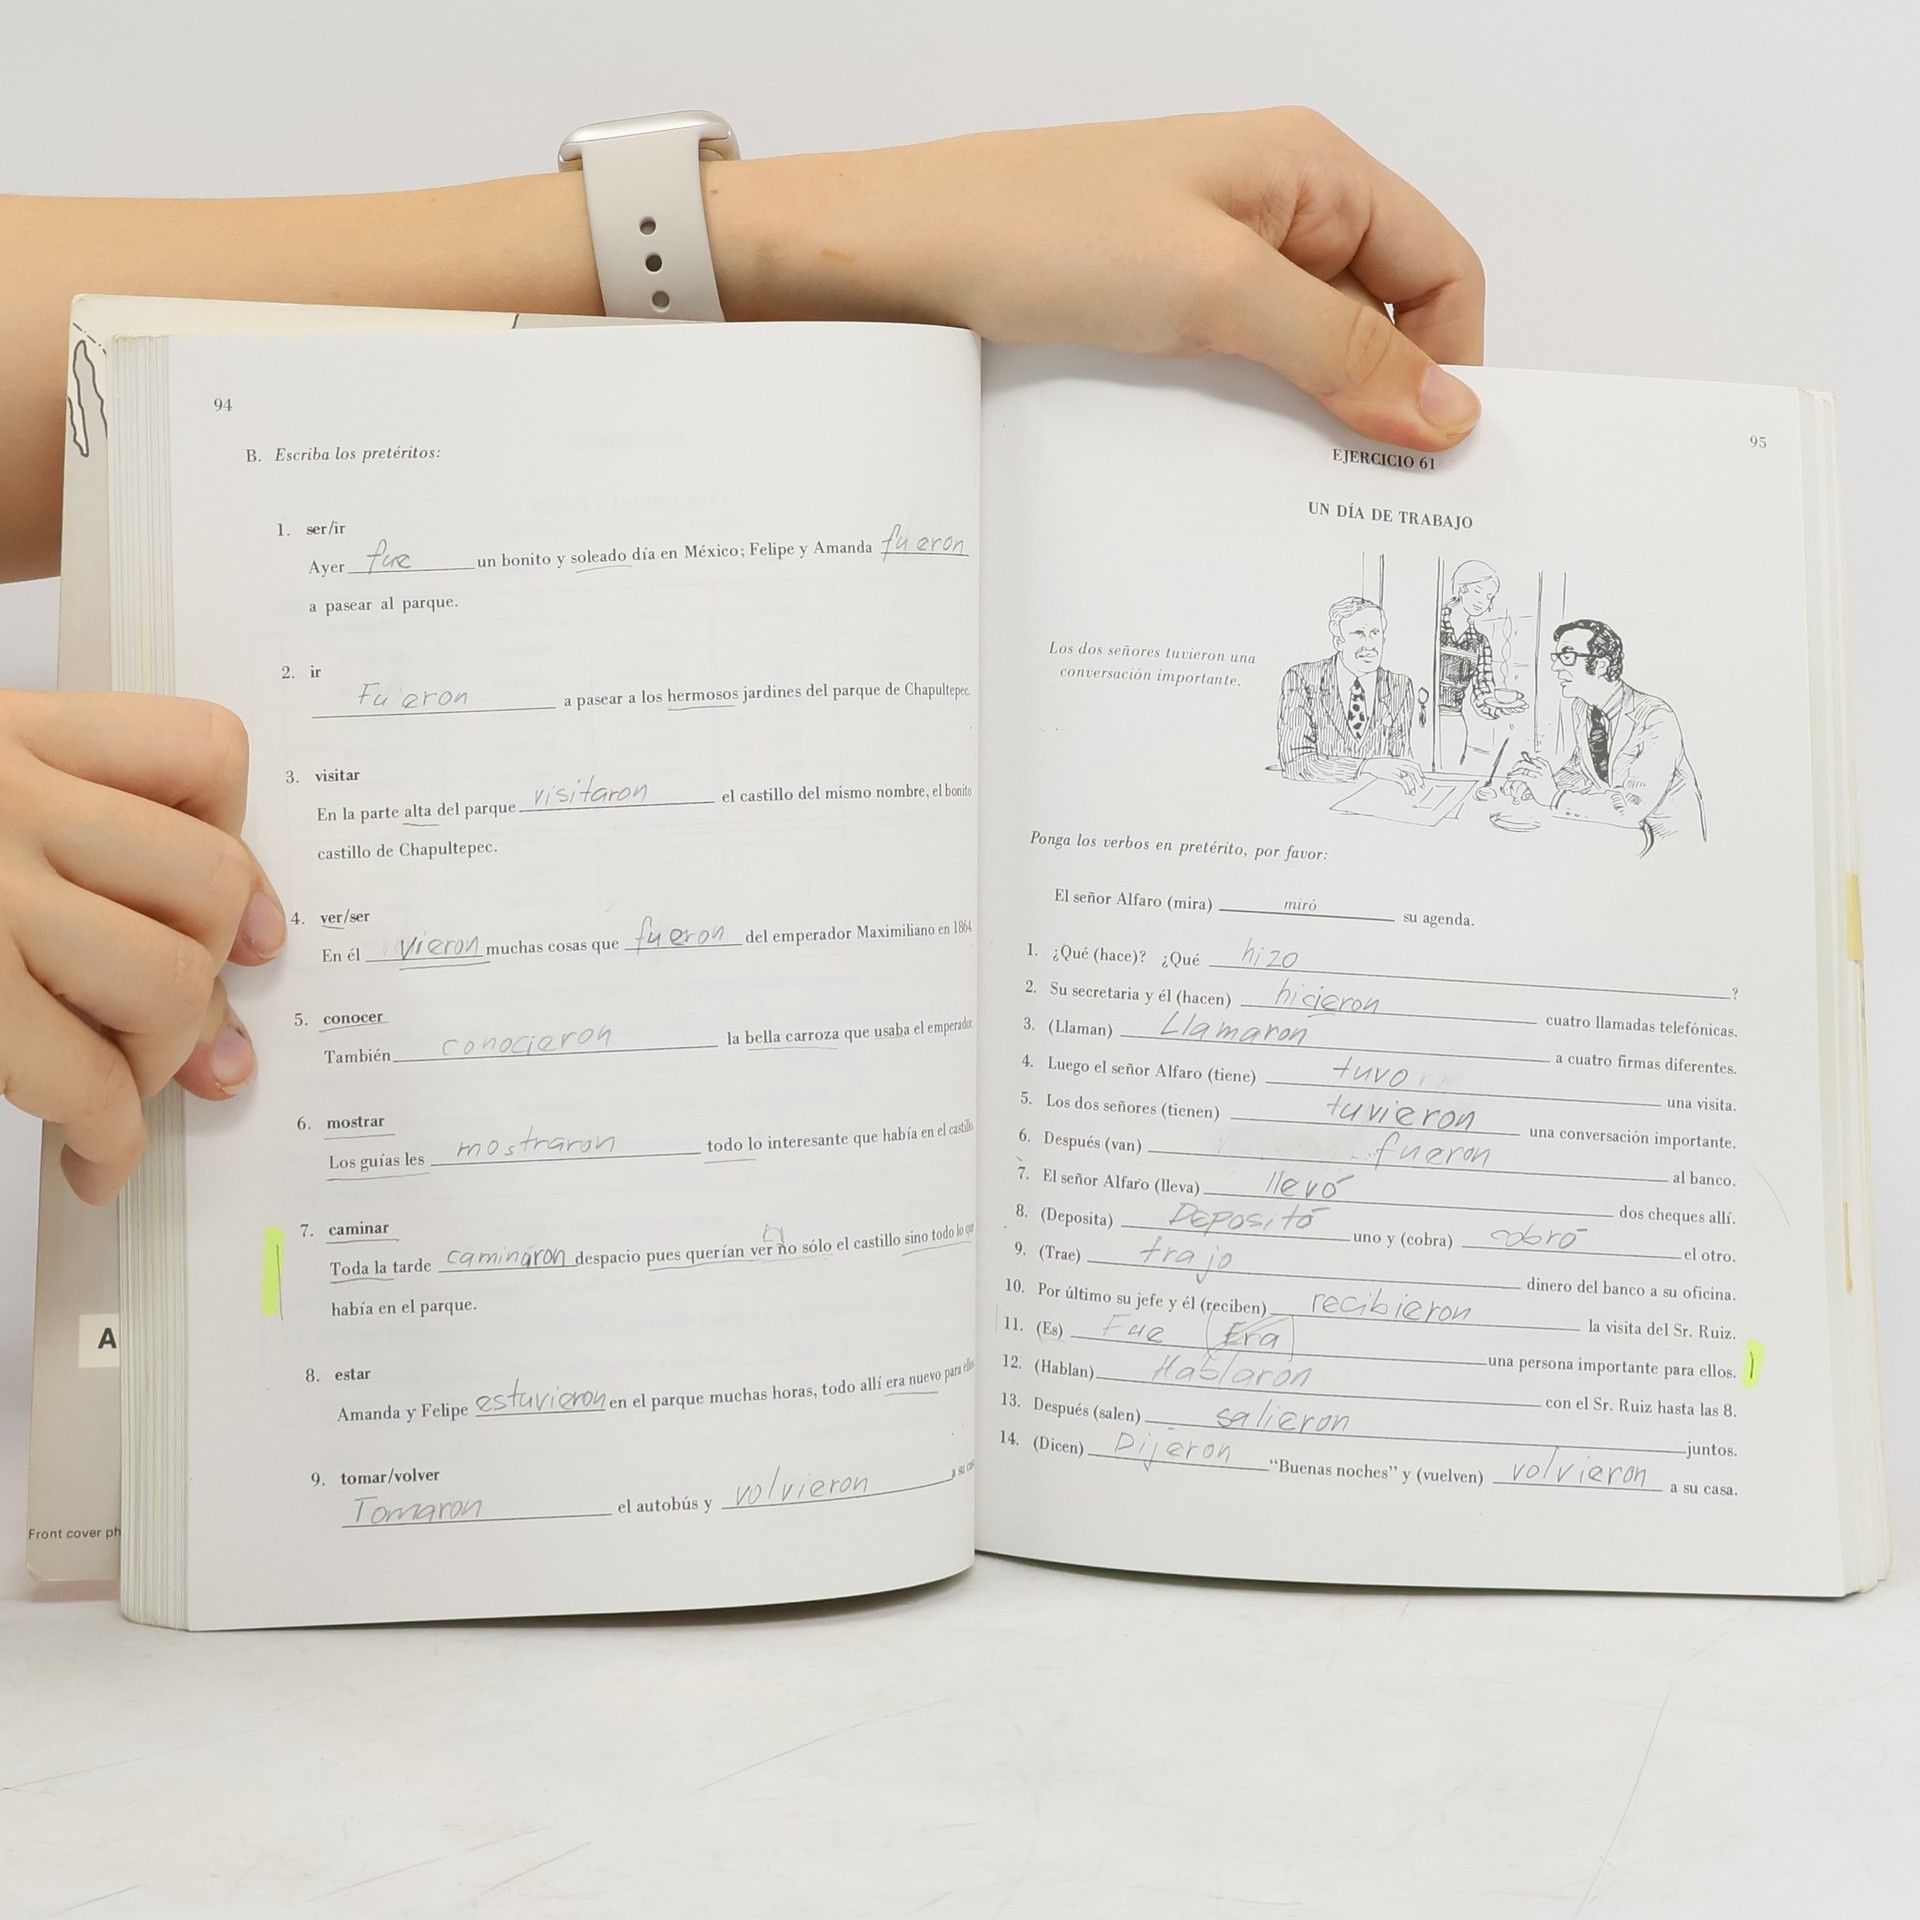 94
B. Escriba los pretéritos:
1. ser/ir
Ayer fue un bonito y soleado día en México; Felipe y Amanda fueron
a pasear al parque.
2. ir
Fueron a pasear a los hermosos jardines del parque de Chapultepec.
3. visitar
En la parte alta del parque visitaron el castillo del mismo nombre, el bonito
castillo de Chapultepec.
4. ver/ser
En él vieron muchas cosas que fueron del emperador Maximiliano en 1864.
5. conocer
También conocieron la bella carroza que usaba el emperador.
6. mostrar
Los guías les mostraron todo lo interesante que había en el castillo.
7. caminar
Toda la tarde caminaron despacio pues querían ver no sólo el castillo sino todo lo que
había en el parque.
8. estar
Amanda y Felipe estuvieron en el parque muchas horas, todo allí era nuevo para ellos
9. tomar/volver
Tomaron el autobús y volvieron a su casa
A
Front cover ph
95
EJERCICIO 61
UN DÍA DE TRABAJO
Los dos señores tuvieron una
conversación importante.
Ponga los verbos en pretérito, por favor:
El señor Alfaro (mira) miró su agenda.
1. ¿Qué (hace)? ¿Qué hizo ?
2. Su secretaria y él (hacen) hicieron cuatro llamadas telefónicas.
3. (Llaman) Llamaron a cuatro firmas diferentes.
4. Luego el señor Alfaro (tiene) tuvo una visita.
5. Los dos señores (tienen) tuvieron una conversación importante.
6. Después (van) fueron al banco.
7. El señor Alfaro (lleva) llevó dos cheques allí.
8. (Deposita) Depositó uno y (cobra) cobró el otro.
9. (Trae) trajo dinero del banco a su oficina.
10. Por último su jefe y él (reciben) recibieron la visita del Sr. Ruiz.
11. (Es) Fue Era una persona importante para ellos.
12. (Hablan) Hablaron con el Sr. Ruiz hasta las 8.
13. Después (salen) salieron juntos.
14. (Dicen) Dijeron "Buenas noches" y (vuelven) volvieron a su casa.